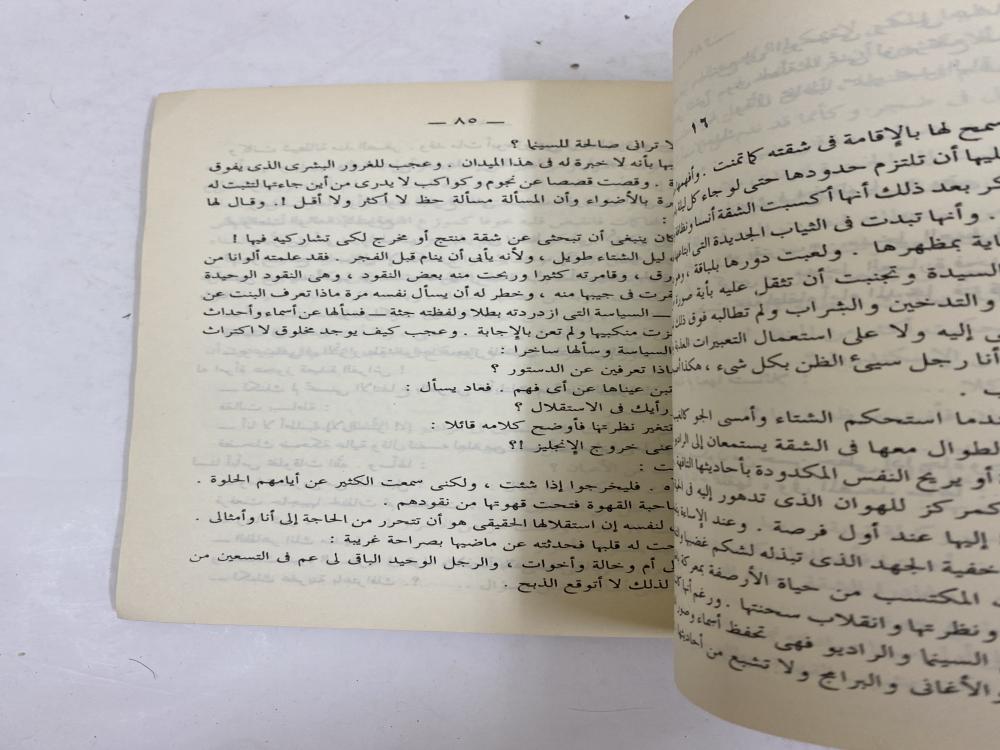 ١٦
سمح لها بالإقامة فى شقته كما تمنت . وأفهمها
ليها أن تلتزم حدودها حتى لو جاء كل ليلة
كر بعد ذلك أنها أكسبت الشقة أنسا ونظافة
. وأنها تبدت فى الثياب الجديدة التى
ية بمظهرها . ولعبت دورها بلباقة ،
السيدة وتجنبت أن تثقل عليه بأية صورة
والتدخين والشراب ولم تطالبه فوق ذلك
إليه ولا على استعمال التعبيرات
أنا رجل سيئ الظن بكل شىء ، هكذا
ندما استحكم الشتاء وأمسى الجو
لطوال معها فى الشقة يستمعان إلى الراديو
أو يريح النفس المكدودة بأحاديثها التافهة
كمركز للهوان الذى تدهور إليه فى
إليها عند أول فرصة . وعند الإساءة
خفية الجهد الذى تبذله لشكم غضبها
المكتسب من حياة الأرصفة بمعركة
ونظرتها وانقلاب سحنتها . ورغم أنها
السينما والراديو فهى تحفظ أسماء وصور
والأغانى والبرامج ولا تشبع من أحاديثها
— ٨٥ —
لا ترانى صالحة للسينما ؟
بها بأنه لا خبرة له فى هذا الميدان . وعجب للغرور البشرى الذى يفوق
ة . وقصت قصصا عن نجوم وكواكب لا يدرى من أين جاءتها لتثبت له
رة بالأضواء وأن المسألة مسألة حظ لا أكثر ولا أقل !. وقال لها
:
كان ينبغى أن تبحثى عن شقة منتج أو مخرج لكى تشاركيه فيها !
ليل الشتاء طويل ، ولأنه يأبى أن ينام قبل الفجر . فقد علمته ألوانا من
ورق ، وقامرته كثيرا وربحت منه بعض النقود ، وهى النقود الوحيدة
قرت فى جيبها منه ، وخطر له أن يسأل نفسه مرة ماذا تعرف البنت عن
— السياسة التى ازدردته بطلا ولفظته جثة — فسألها عن أسماء وأحداث
زت منكبيها ولم تعن بالإجابة . وعجب كيف يوجد مخلوق لا اكتراث
السياسة وسألها ساخرا :
ماذا تعرفين عن الدستور ؟
تبن عيناها عن أى فهم . فعاد يسأل :
رأيك فى الاستقلال ؟
تتغير نظرتها فأوضح كلامه قائلا :
عنى خروج الإنجليز !؟
ت :
ه . فليخرجوا إذا شئت ، ولكنى سمعت الكثير عن أيامهم الحلوة .
صاحبة القهوة فتحت قهوتها من نقودهم .
لنفسه إن استقلالها الحقيقى هو أن تتحرر من الحاجة إلى أنا وأمثالى .
حت له قلبها فحدثته عن ماضيها بصراحة غريبة :
لى أم وخالة وأخوات ، والرجل الوحيد الباقى لى عم فى التسعين من
لذلك لا أتوقع الذبح .